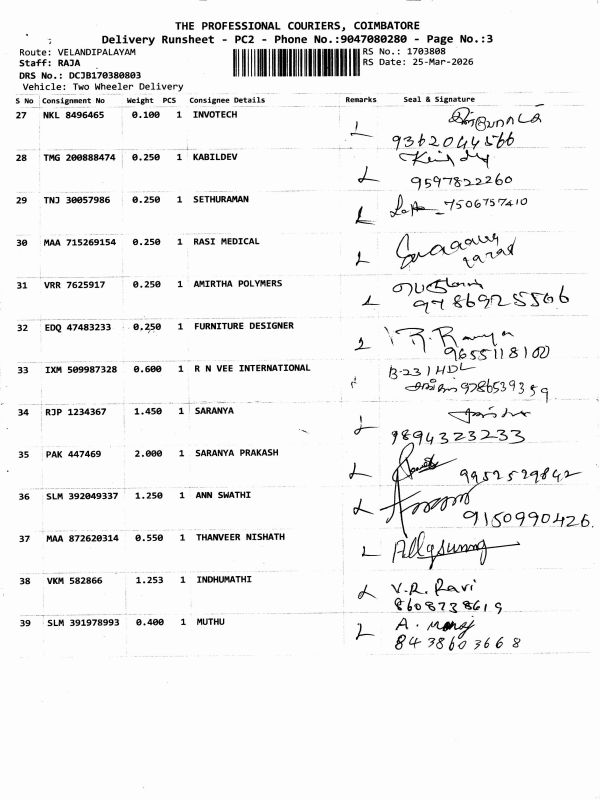 THE PROFESSIONAL COURIERS, COIMBATORE
Delivery Runsheet - PC2 - Phone No.:9047080280 - Page No.:3
Route: VELANDIPALAYAM
RS No.: 1703808
Staff: RAJA
RS Date: 25-Mar-2026
DRS No.: DCJB170380803
Vehicle: Two Wheeler Delivery
S No Consignment No Weight PCS Consignee Details Remarks Seal & Signature
27 NKL 8496465 0.100 1 INVOTECH
9362044566
28 TMG 200888474 0.250 1 KABILDEV
9597822260
29 TNJ 30057986 0.250 1 SETHURAMAN 7506757410
30 MAA 715269154 0.250 1 RASI MEDICAL
31 VRR 7625917 0.250 1 AMIRTHA POLYMERS
9786925566
32 EDQ 47483233 0.250 1 FURNITURE DESIGNER R. Ramya
9655118100
33 IXM 509987328 0.600 1 R N VEE INTERNATIONAL B-231 HDL
9786539359
34 RJP 1234367 1.450 1 SARANYA
9894323233
35 PAK 447469 2.000 1 SARANYA PRAKASH
9952529842
36 SLM 392049337 1.250 1 ANN SWATHI
9150990426.
37 MAA 872620314 0.550 1 THANVEER NISHATH
38 VKM 582866 1.253 1 INDHUMATHI V.R. Ravi
8608738619
39 SLM 391978993 0.400 1 MUTHU A. Manoj
8438603668